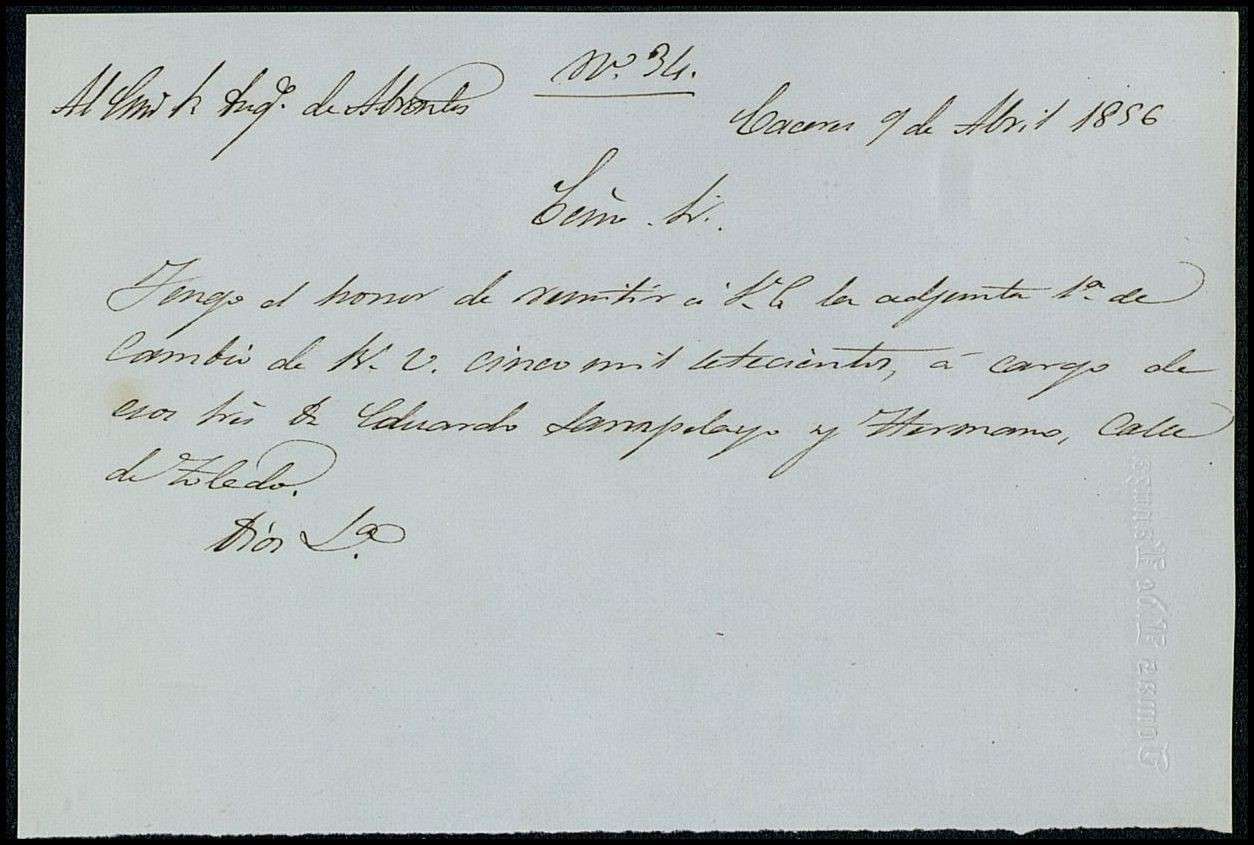 Nº. 34.
Al Exmo Sr Duqe. de Abrantes
Caceres 9 de Abril 1856
Exmo. Sr.
Tengo el honor de remitir á V. E. la adjunta 1ª. de
cambio de R. v. cinco mil setecientos, á cargo de
esos Sres Dn Eduardo Sampelayo y Hermano, Calle
de Toledo.
Dios Lª.